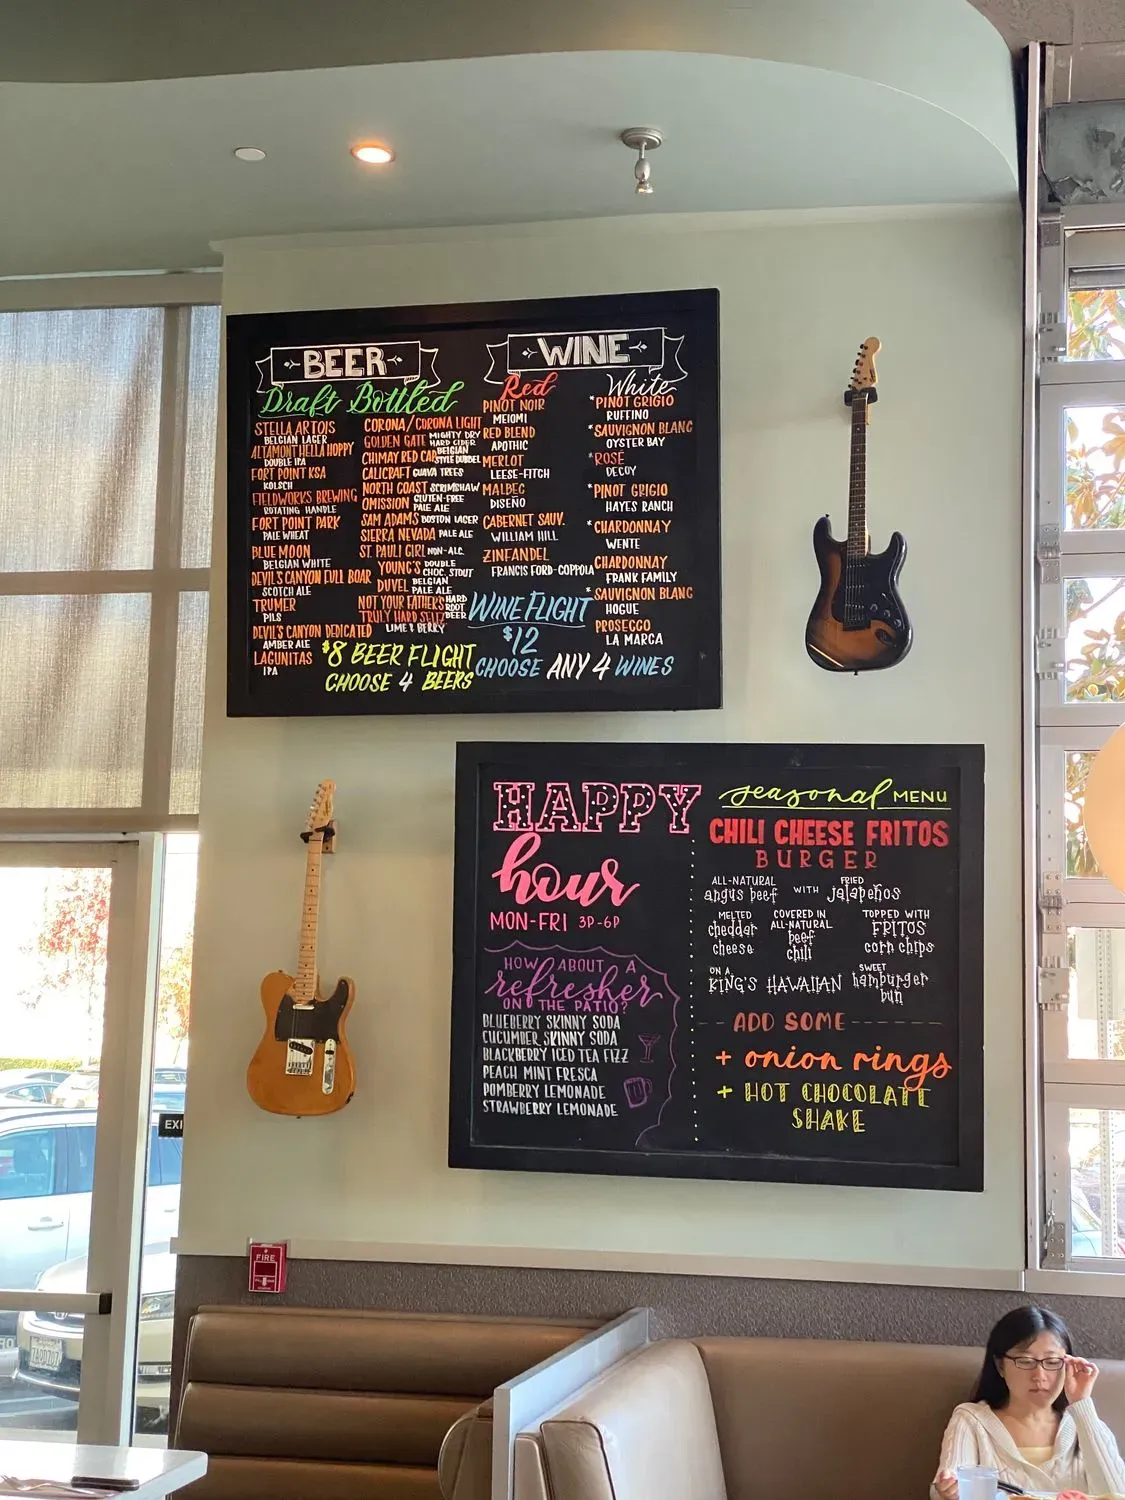 BEER
Draft Bottled
STELLA ARTOIS
BELGIAN LAGER
ALTAMONT HELLA HOPPY
DOUBLE IPA
FORT POINT KSA
KOLSCH
FIELDWORKS BREWING
ROTATING HANDLE
FORT POINT PARK
PALE WHEAT
BLUE MOON
BELGIAN WHITE
DEVIL'S CANYON FULL BOAR
SCOTCH ALE
TRUMER
PILS
DEVIL'S CANYON DEDICATED
AMBER ALE
LAGUNITAS
IPA
CORONA/CORONA LIGHT
GOLDEN GATE MIGHTY DRY HARD CIDER
CHIMAY RED CAP BELGIAN STYLE DUBBEL
CALICRAFT GUAVA TREES
NORTH COAST SCRIMSHAW
OMISSION GLUTEN-FREE PALE ALE
SAM ADAMS BOSTON LAGER
SIERRA NEVADA PALE ALE
ST. PAULI GIRL NON-ALC.
YOUNG'S DOUBLE CHOC. STOUT
DUVEL BELGIAN PALE ALE
NOT YOUR FATHER'S HARD ROOT BEER
TRULY HARD SELTZ
LIME & BERRY
$8 BEER FLIGHT
CHOOSE 4 BEERS
WINE
Red
PINOT NOIR
MEIOMI
RED BLEND
APOTHIC
MERLOT
LEESE-FITCH
MALBEC
DISEÑO
CABERNET SAUV.
WILLIAM HILL
ZINFANDEL
FRANCIS FORD-COPPOLA
White
*PINOT GRIGIO
RUFFINO
*SAUVIGNON BLANC
OYSTER BAY
*ROSÉ
DECOY
*PINOT GRIGIO
HAYES RANCH
*CHARDONNAY
WENTE
CHARDONNAY
FRANK FAMILY
*SAUVIGNON BLANC
HOGUE
PROSECCO
LA MARCA
WINE FLIGHT
$12
CHOOSE ANY 4 WINES
HAPPY
hour
MON-FRI 3P-6P
HOW ABOUT A
refresher
ON THE PATIO?
BLUEBERRY SKINNY SODA
CUCUMBER SKINNY SODA
BLACKBERRY ICED TEA FIZZ
PEACH MINT FRESCA
POMBERRY LEMONADE
STRAWBERRY LEMONADE
seasonal MENU
CHILI CHEESE FRITOS
BURGER
ALL-NATURAL angus beef WITH FRIED jalapeños
MELTED cheddar cheese
COVERED IN ALL-NATURAL beef chili
TOPPED WITH FRITOS corn chips
ON A KING'S HAWAIIAN SWEET hamburger bun
ADD SOME
+ onion rings
+ HOT CHOCOLATE
SHAKE
EXI
FIRE